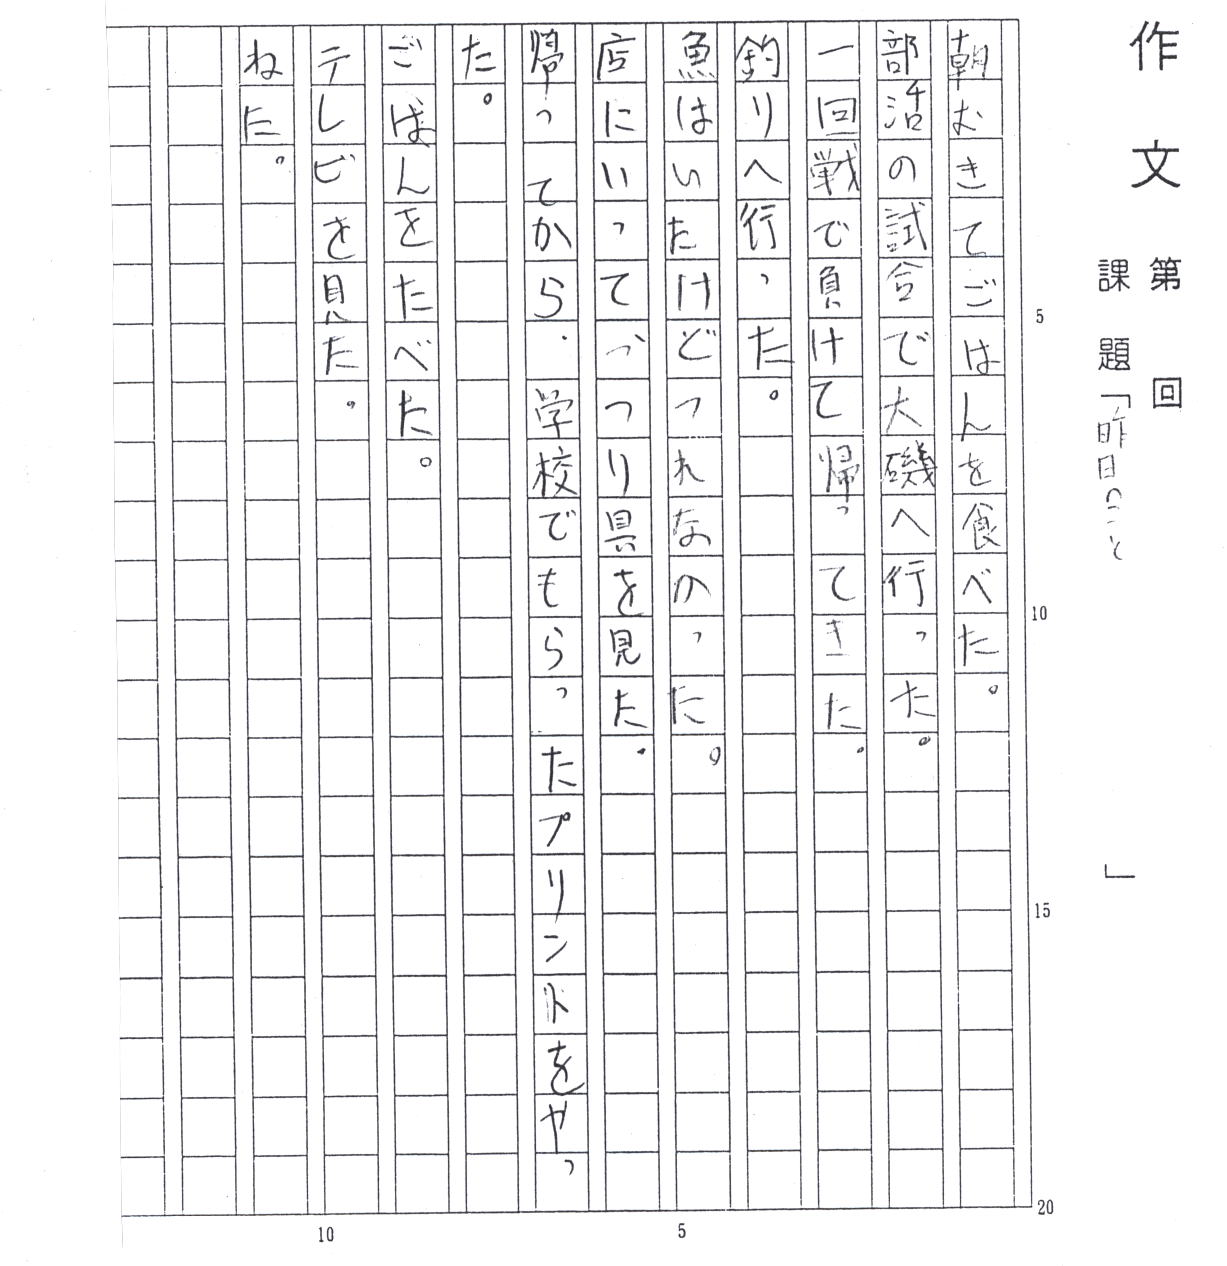 作文 第 回
課題「昨日のこと 」
朝おきてごはんを食べた。
部活の試合で大磯へ行った。
一回戦で負けて帰ってきた。
釣りへ行った。
魚はいたけどつれなかった。
店にいってっつり具を見た。
帰ってから、学校でもらったプリントをやっ
た。
ごはんをたべた。
テレビを見た。
ねた。
5
10
15
20
5
10